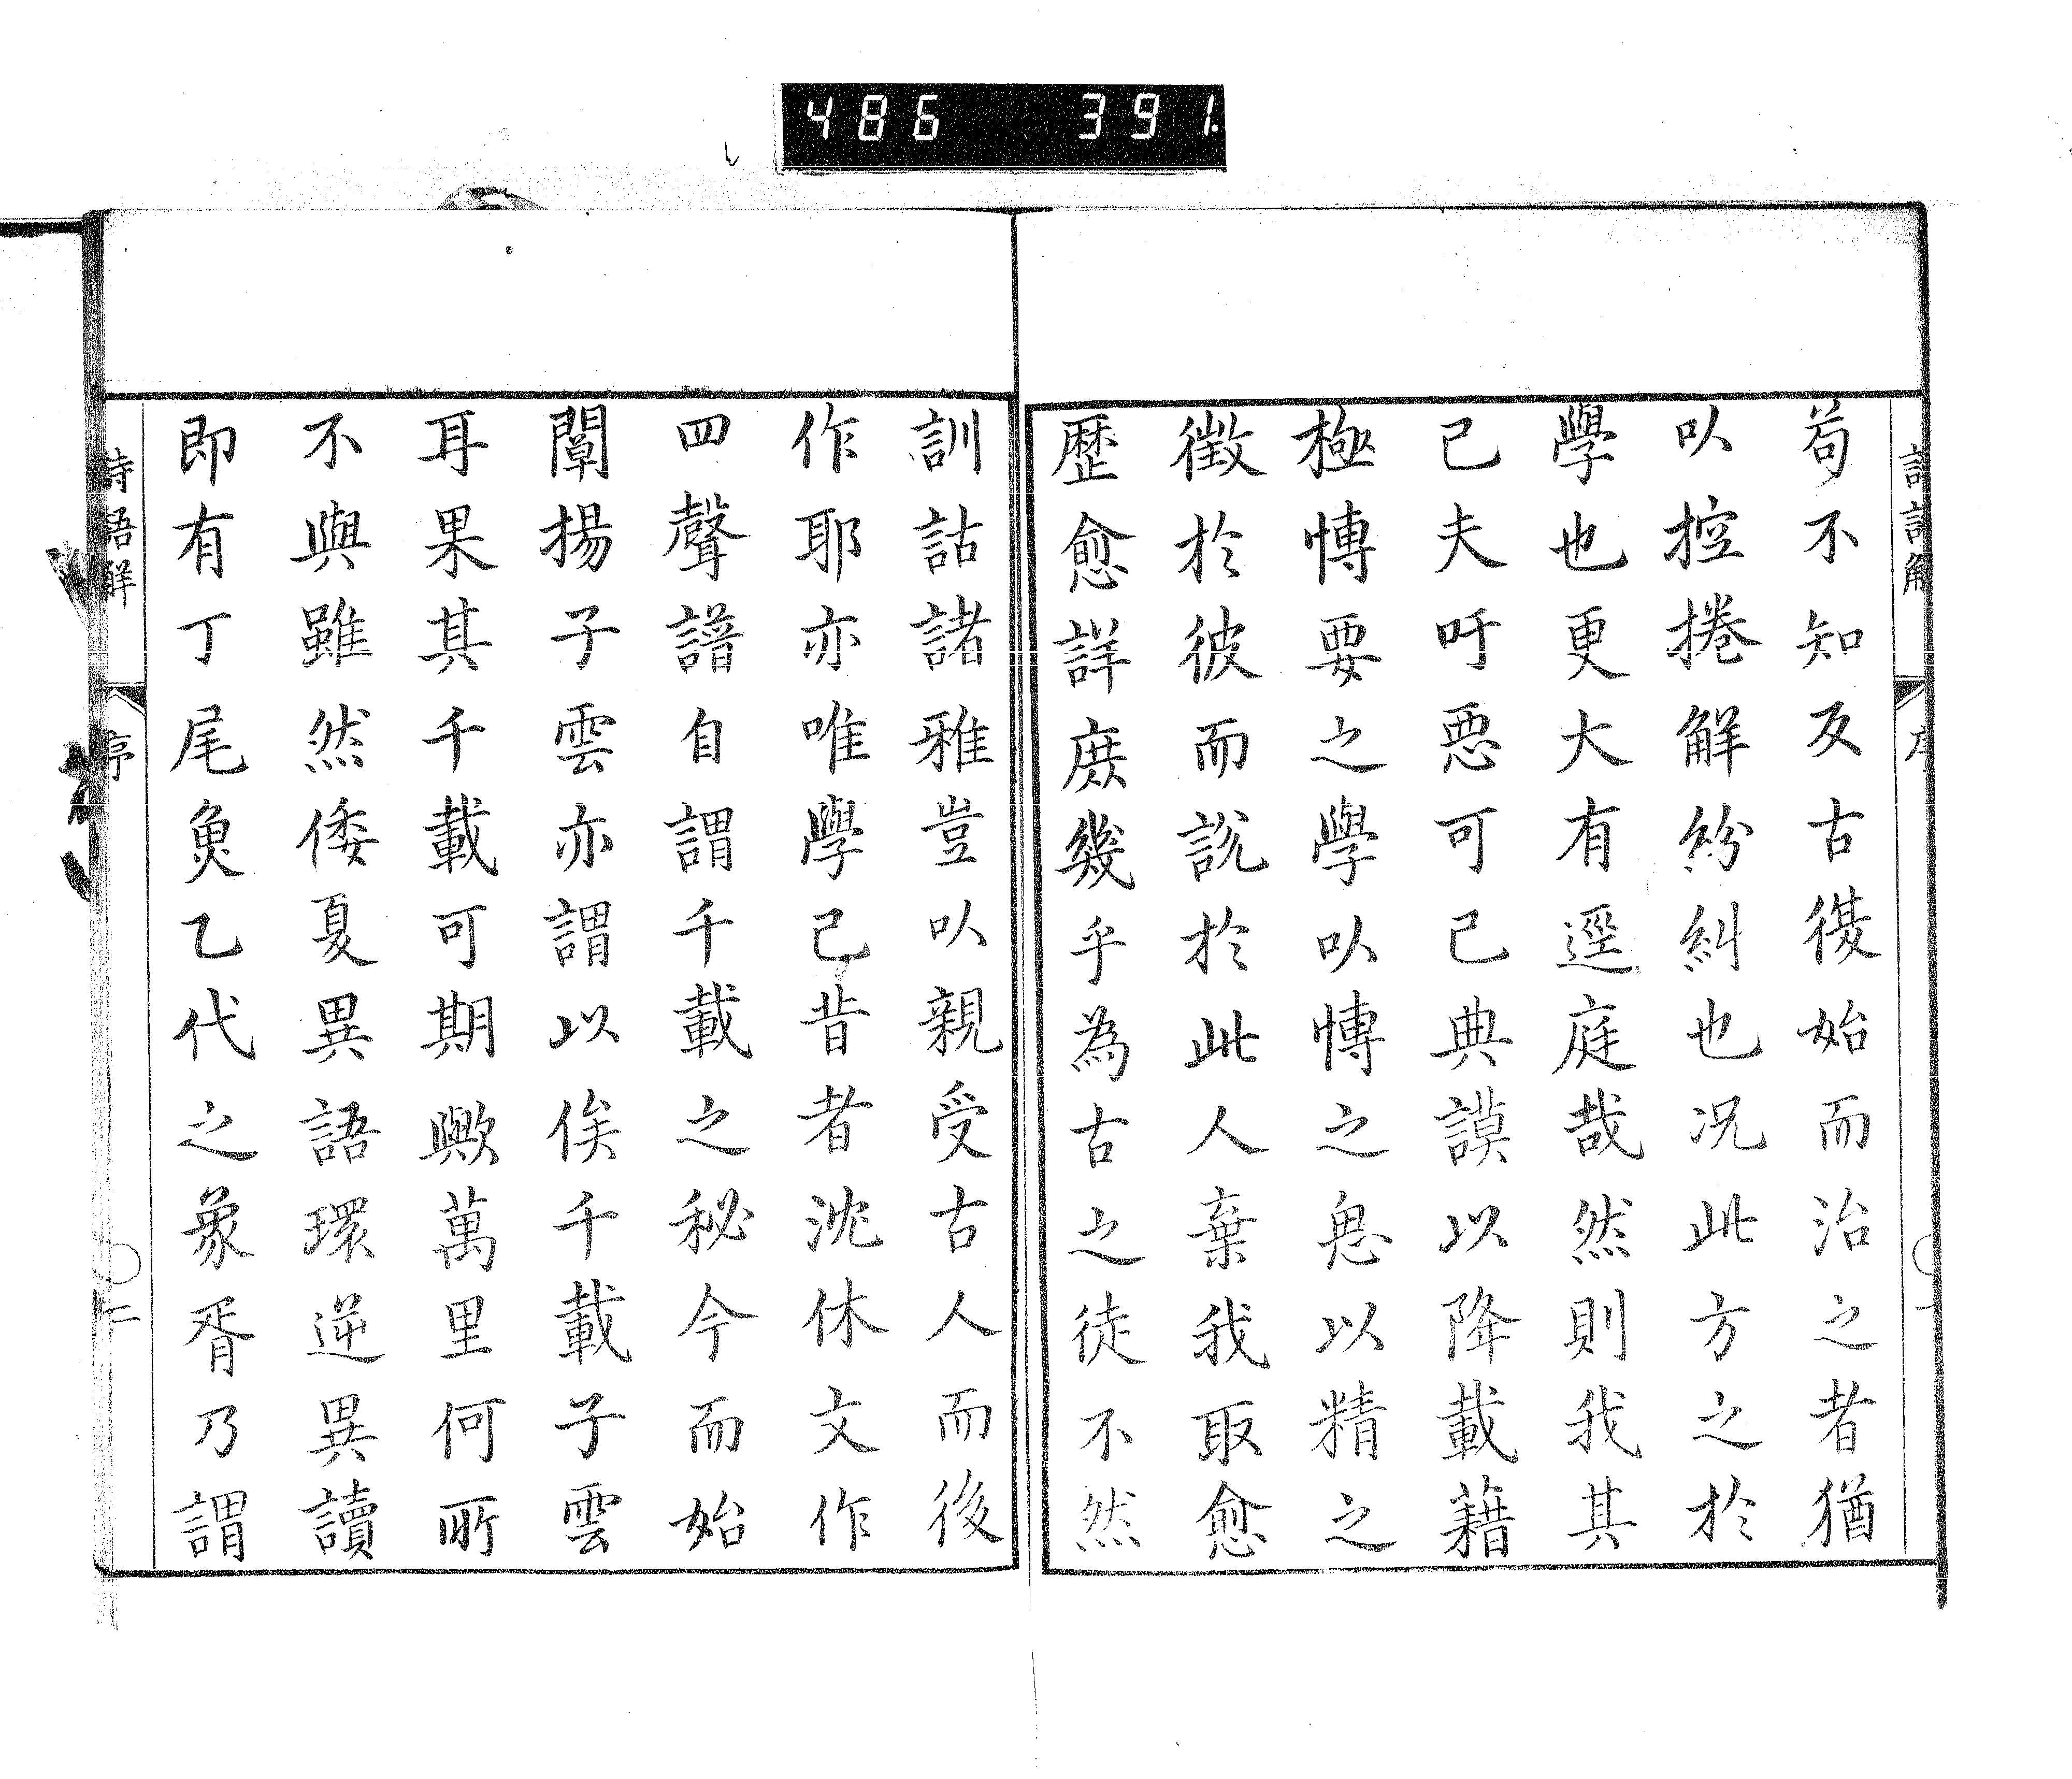 486 391.
詩語解 序
苟不知反古復始而治之者猶
以控捲解紛糾也况此方之於
學也更大有逕庭哉然則我其
已夫吁惡可已典謨以降載籍
極慱要之學以慱之思以精之
徴於彼而說於此人棄我取愈
歷愈詳庶幾乎為古之徒不然
訓詁諸雅豈以親受古人而後
作耶亦唯學已昔者沈休文作
四聲譜自謂千載之秘今而始
闡揚子雲亦謂以俟千載子雲
耳果其千載可期歟萬里何所
不與雖然倭夏異語環逆異讀
即有丁尾魚乙代之象胥乃謂
詩語解 序 二